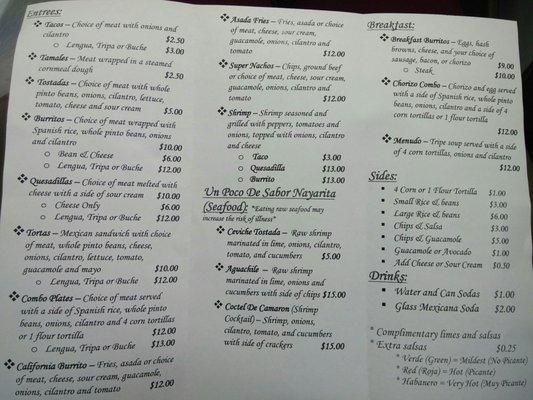 Entrees:
❖ Tacos – Choice of meat with onions and
cilantro $2.50
o Lengua, Tripa or Buche $3.00
❖ Tamales – Meat wrapped in a steamed
cornmeal dough $2.50
❖ Tostadas – Choice of meat with whole
pinto beans, onions, cilantro, lettuce,
tomato, cheese and sour cream $5.00
❖ Burritos – Choice of meat wrapped with
Spanish rice, whole pinto beans, onions
and cilantro $10.00
o Bean & Cheese $6.00
o Lengua, Tripa or Buche $12.00
❖ Quesadillas – Choice of meat melted with
cheese with a side of sour cream $10.00
o Cheese Only $6.00
o Lengua, Tripa or Buche $12.00
❖ Tortas – Mexican sandwich with choice
of meat, whole pinto beans, cheese,
onions, cilantro, lettuce, tomato,
guacamole and mayo $10.00
o Lengua, Tripa or Buche $12.00
❖ Combo Plates – Choice of meat served
with a side of Spanish rice, whole pinto
beans, onions, cilantro and 4 corn tortillas
or 1 flour tortilla $12.00
o Lengua, Tripa or Buche $13.00
❖ California Burrito – Fries, asada or choice
of meat, cheese, sour cream, guacamole,
onions, cilantro and tomato $12.00
❖ Asada Fries – Fries, asada or choice
of meat, cheese, sour cream,
guacamole, onions, cilantro and
tomato $12.00
❖ Super Nachos – Chips, ground beef
or choice of meat, cheese, sour cream,
guacamole, onions, cilantro and
tomato $12.00
❖ Shrimp – Shrimp seasoned and
grilled with peppers, tomatoes and
onions, topped with onions, cilantro
and cheese
o Taco $3.00
o Quesadilla $13.00
o Burrito $13.00
Un Poco De Sabor Nayarita
(Seafood): *Eating raw seafood may
increase the risk of illness*
❖ Ceviche Tostada – Raw shrimp
marinated in lime, onions, cilantro,
tomato, and cucumbers $5.00
❖ Aguachile – Raw shrimp
marinated in lime, onions and
cucumbers with side of chips $15.00
❖ Coctel De Camaron (Shrimp
Cocktail) – Shrimp, onions,
cilantro, tomato, and cucumbers
with side of crackers $15.00
Breakfast:
❖ Breakfast Burritos – Eggs, hash
browns, cheese, and your choice of
sausage, bacon, or chorizo $9.00
o Steak $10.00
❖ Chorizo Combo – Chorizo and egg served
with a side of Spanish rice, whole pinto
beans, onions, cilantro and a side of 4
corn tortillas or 1 flour tortilla
$12.00
❖ Menudo – Tripe soup served with a side
of 4 corn tortillas, onions and cilantro
$12.00
Sides:
▪ 4 Corn or 1 Flour Tortilla $1.00
▪ Small Rice & beans $3.00
▪ Large Rice & beans $6.00
▪ Chips & Salsa $3.00
▪ Chips & Guacamole $5.00
▪ Guacamole or Avocado $1.00
▪ Add Cheese or Sour Cream $0.50
Drinks:
▪ Water and Can Sodas $1.00
▪ Glass Mexicana Soda $2.00
* Complimentary limes and salsas
* Extra salsas $0.25
* Verde (Green) = Mildest (No Picante)
* Red (Roja) = Hot (Picante)
* Habanero = Very Hot (Muy Picante)